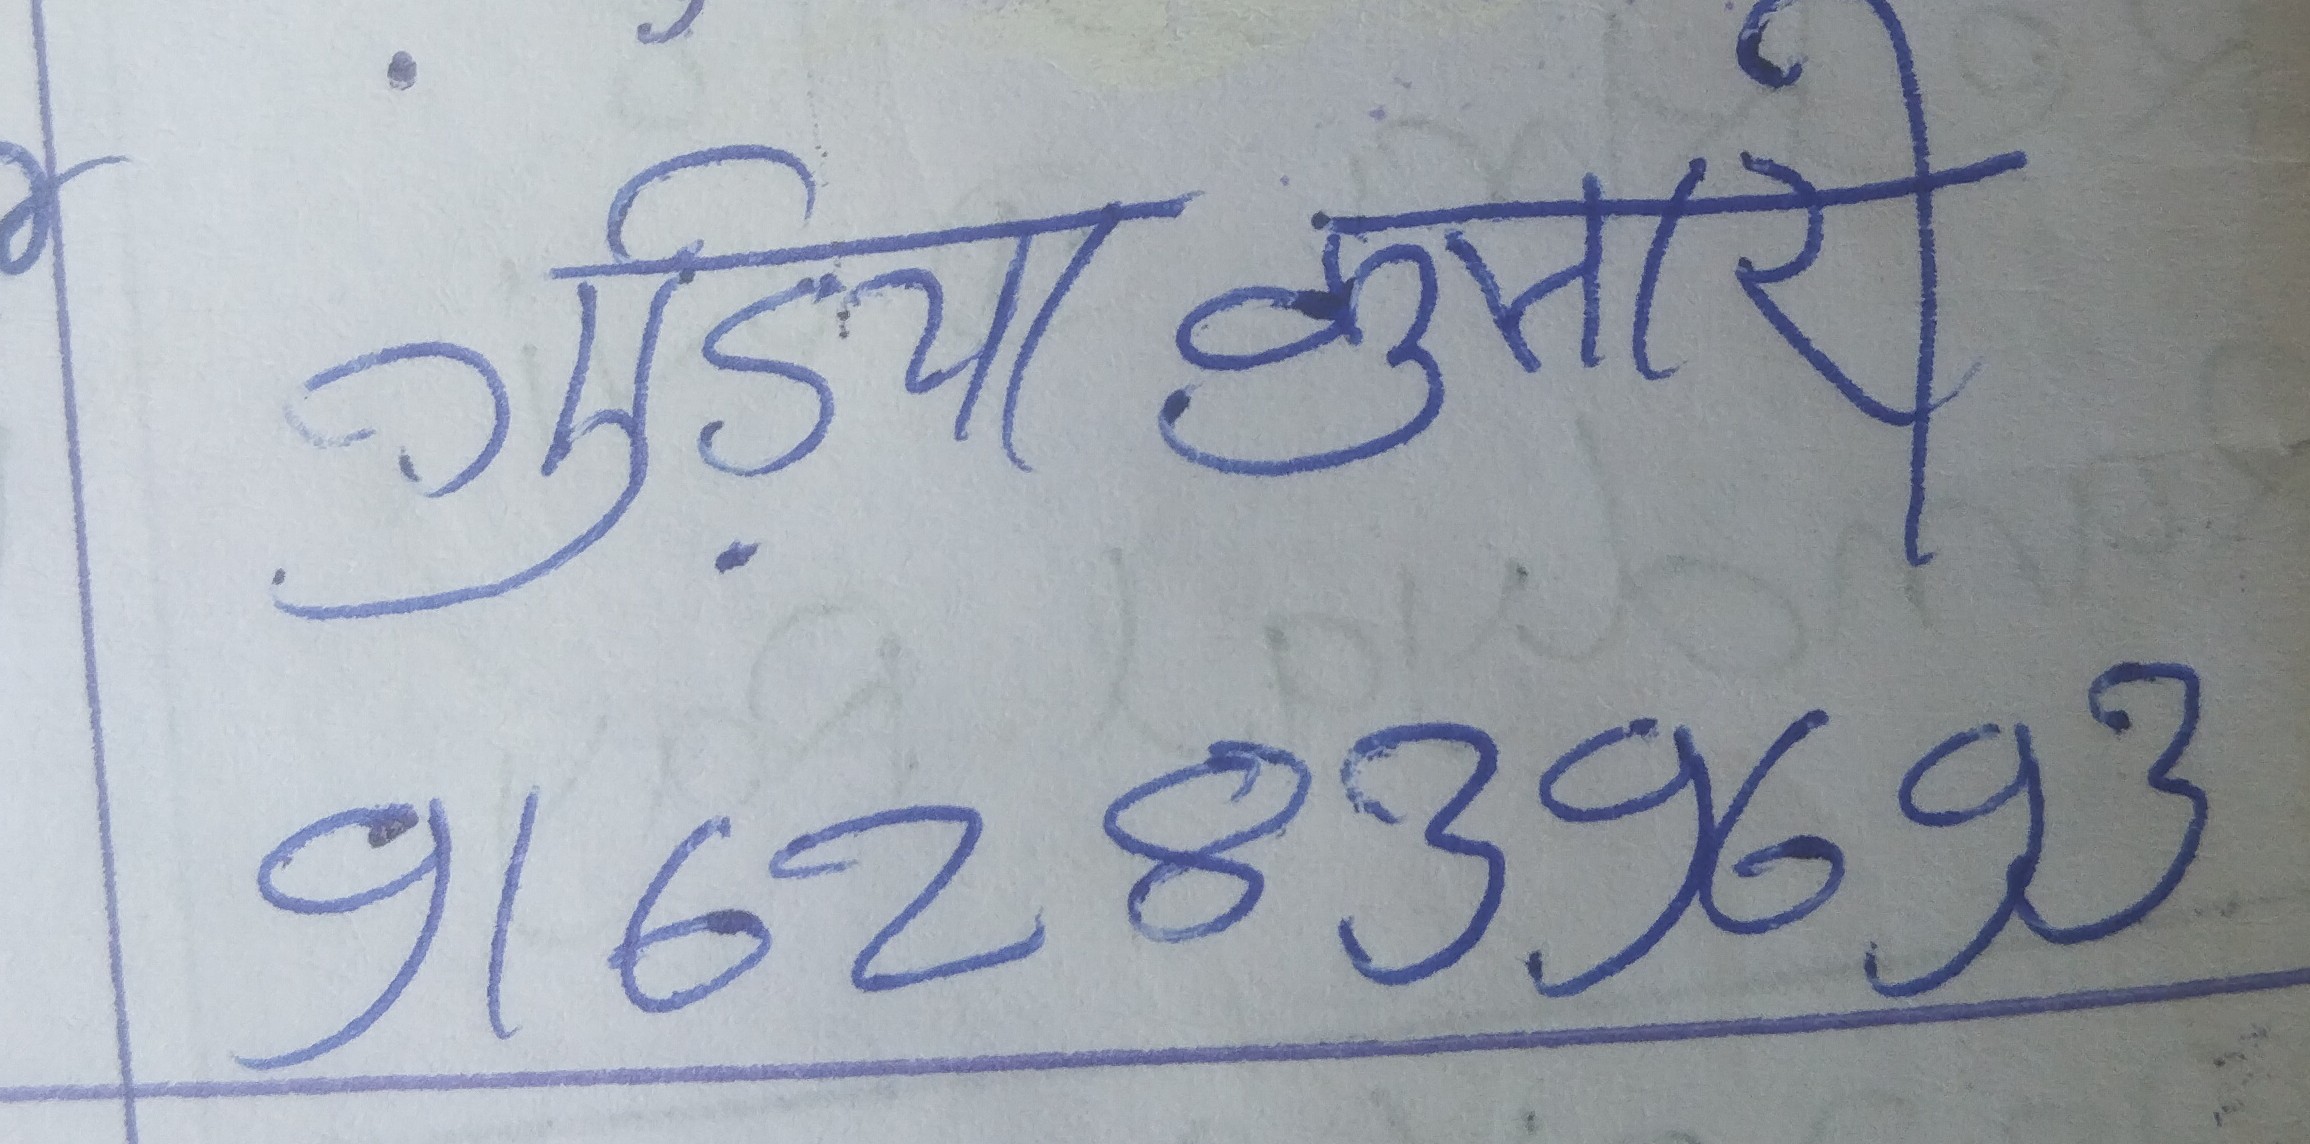 गुड़िया कुमारी
9162839693